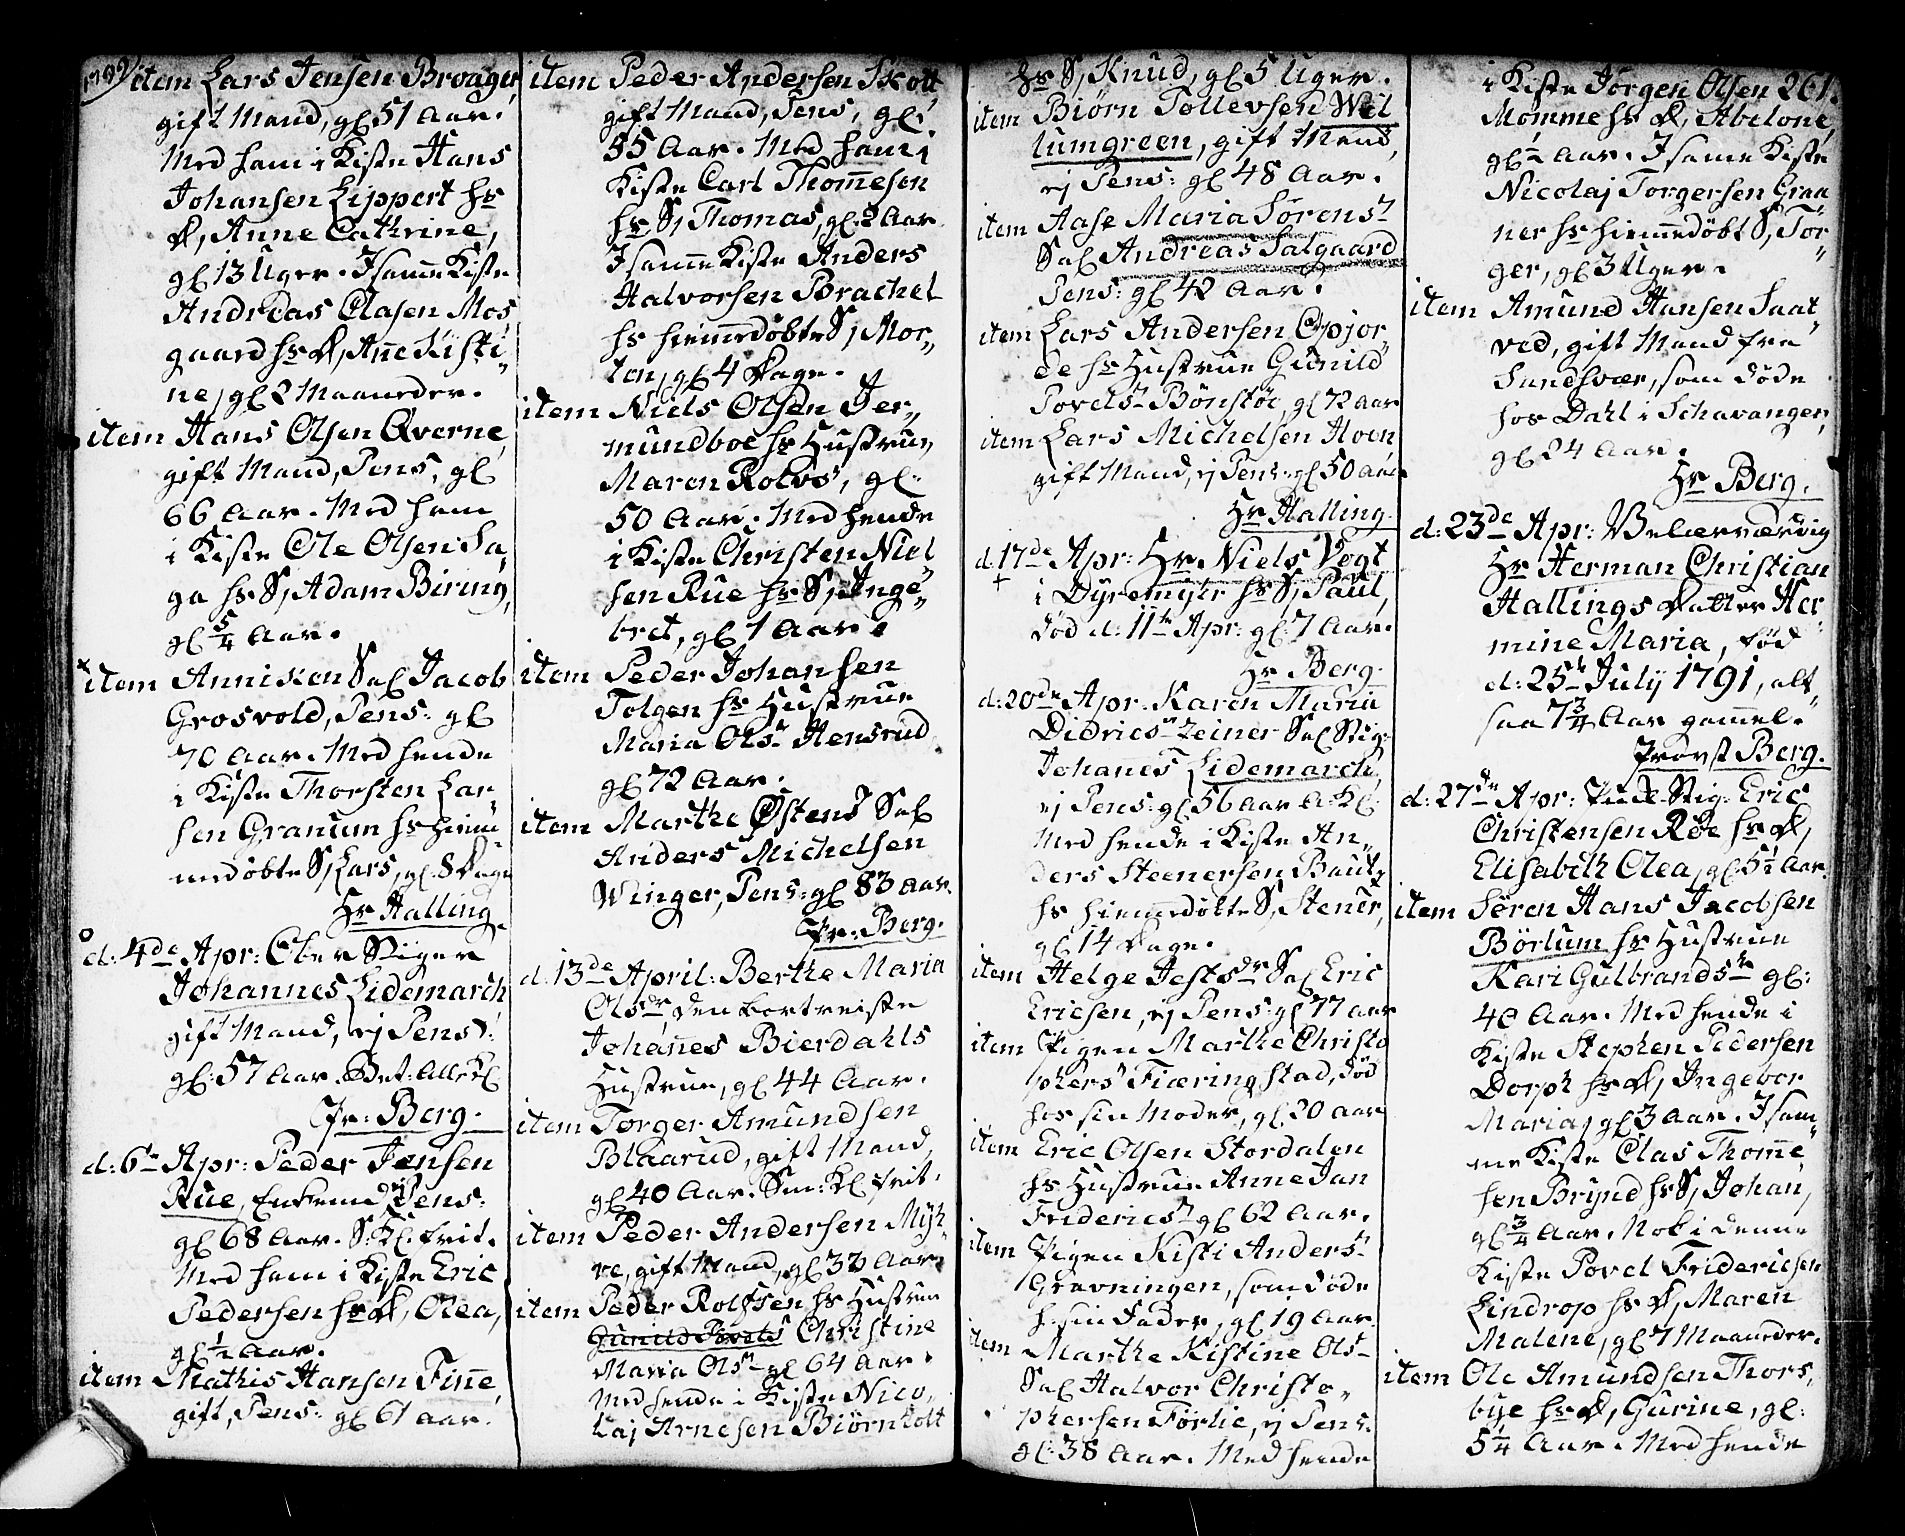 item Lars Jensen Broager
gift Mand, gl 51 Aar.
Med ham i Kiste Hans
Johansen Lippert hs
D, Anne Cathrine,
gl 13 Uger. I same Kiste
Andreas Olasen Mos
gaard hs D, Ane Kisti„
ne, gl 2 Maaneder.
item Hans Olsen Qverne,
gift Mand, Pens, gl
66 Aar. Med ham
i Kiste Ole Olsen Sa„
ga hs S, Adam Biring,
gl 5/4 Aar.
item Anniken Sal Jacob
Grosvold, Pens: gl
70 Aar. Med hende
i Kiste Thorsten Lar„
sen Granum hs hiem„
medøbte S, Lars, gl. 8 Dage
Hr Halling.
d: 4de Apr: Ober Stiger
Johannes Lidemarch
gift Mand, ej Pens:
gl: 57 Aar. Bet: Alle Kl
Pr: Berg.
d: 6te Apr: Peder Jensen
Rue, Enkemd, Pens:
gl 68 Aar. S: Kl: frit.
Med ham i Kiste Eric
Pedersen hs D, Olea,
gl ½ Aar.
item Mathis Hansen Fine,
gift, Pens: gl 61 Aar.
item Peder Andersen Skott
gift Mand, Pens, gl:
55 Aar. Med ham i
Kiste Carl Thomesen
hs S, Thomas, gl: 2 Aar
I same Kiste Anders
Halvorsen Brachel
hs hiemedøbte S, Mor„
ten, gl 4 Dage.
item Niels Olsen Jer„
mundboe hs Hustrue,
Maren Rolvs, gl.
50 Aar. Med hende
i Kiste Christen Niel
sen Rue hs S, Inge„
bret, gl 1 Aar.
item Peder Johansen
Tolgen hs Hustrue
Maria Ols Hensrud
gl 72 Aar.
item Marthe Østens Sal
Anders Michelsen
Winger, Pens: gl 83 Aar.
Pr: Berg.
d. 13de April: Berthe Maria
Olsdr den bortreiste
Johanes Bierdahls
Hustrue, gl 44 Aar.
item Torger Amundsen
Blaarud, gift Mand,
gl 40 Aar. Sm: Kl frit.
item Peder Andersen Myh„
re, gift Mand, gl 32 Aar.
item Peder Rolfsen hs Hustrue
Gunild Povels Christine
Maria Ols gl 64 Aar.
Med hende i Kiste Nico„
laj Arnesen Biørnholt
hs S, Knud, gl 5 Uger.
item Biørn Tollevsen Wel
lumgreen, gift Mand,
ej Pens: gl 48 Aar.
item Aase Maria Sørens
Sal Andreas Salgaard
Pens: gl 42 Aar.
item Lars Andersen Opjor„
de hs Hustrue Gunild
Povels Bønstøe, gl 72 Aar
item Lars Michelsen Hoen
gift Mand, ej Pens: gl 50 Aar
Hr Halling.
d. 17de Apr: Hr Niels Vogt
i Dyremyhr hs S, Paul,
død d: 11te Apr: gl: 7 Aar.
Hr Berg.
d: 20de Apr. Karen Maria
Didrics Zeiner Sal Stig:
Johanes Lidemarch,
ej Pens: gl 56 Aar A: Kl:
Med hende i Kiste An„
ders Steenersen Bautz
hs hiemedøbte S, Stener,
gl 14 Dage.
item Helge Jestsdr Sal Eric
Ericsen, ej Pens: gl 77 Aar
item Pigen Marthe Christo
phers Fiæringstad, død
hos sin Moder, gl, 20 Aar
item Eric Olsen Stordalen
hs Hustrue Anne Jan
Frideric's gl 62 Aar.
item Pigen Kisti Anders
Gravningen, som døde
h. sin Fader, gl, 19 Aar.
item Marthe Kistine Ols
Sal Halvor Christo„
phersen Førlie, ej Pens:
gl: 38 Aar. Med hende
i Kiste Jørgen Olsen 261.
Momme hs D, Abelone,
gl ½ Aar. I same Kiste
Nicolaj Torgersen Graa
ner hs hiemedøbt S, Tor„
ger, gl 3 Uger.
item Amund Hansen Saat„
ved, gift Mand fra
Sandsvær, som døde
hos Dahl i Schavanger,
gl 24 Aar.
Hr Berg.
d: 23de Apr: Velærværdig
Hr Herman Christian
Hallings Datter Her„
mine Maria, fød
d: 25de July 1791, alt„
saa 7¾ Aar gammel.
Provst Berg.
d: 27de Apr: Stig: Eric
Christensen Røe hs D,
Elisabeth Olea, gl 5½ Aar.
item Søren Hans Jacobsen
Børlum hs Hustrue
Kari Gulbrands gl:
40 Aar. Med hende i
Kiste Stephen Pedersen
Dorph hs D, Ingebor
Maria, gl 3 Aar. I sam„
me Kiste Clas Thomme
sen Brynd hs S, Johan,
gl ¾ Aar. Nok i denne
Kiste Povel Fridericsen
Lindrop hs D, Maren
Malene, gl 7 Maaneder.
item Ole Amundsen Thors„
bye hs D, Gurine, gl:
5¼ Aar. Med hende